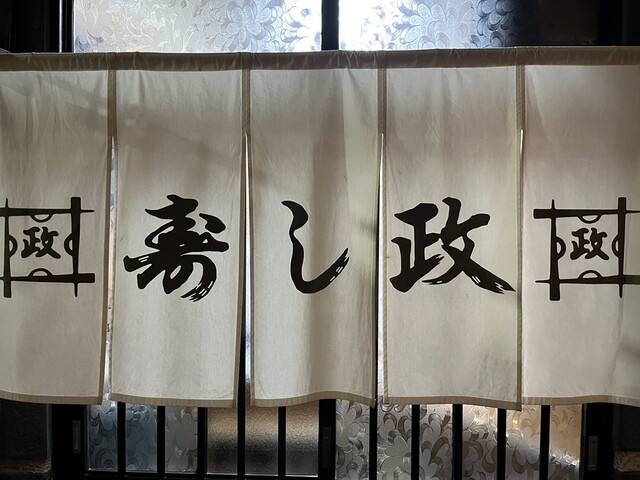 政
寿し政
政